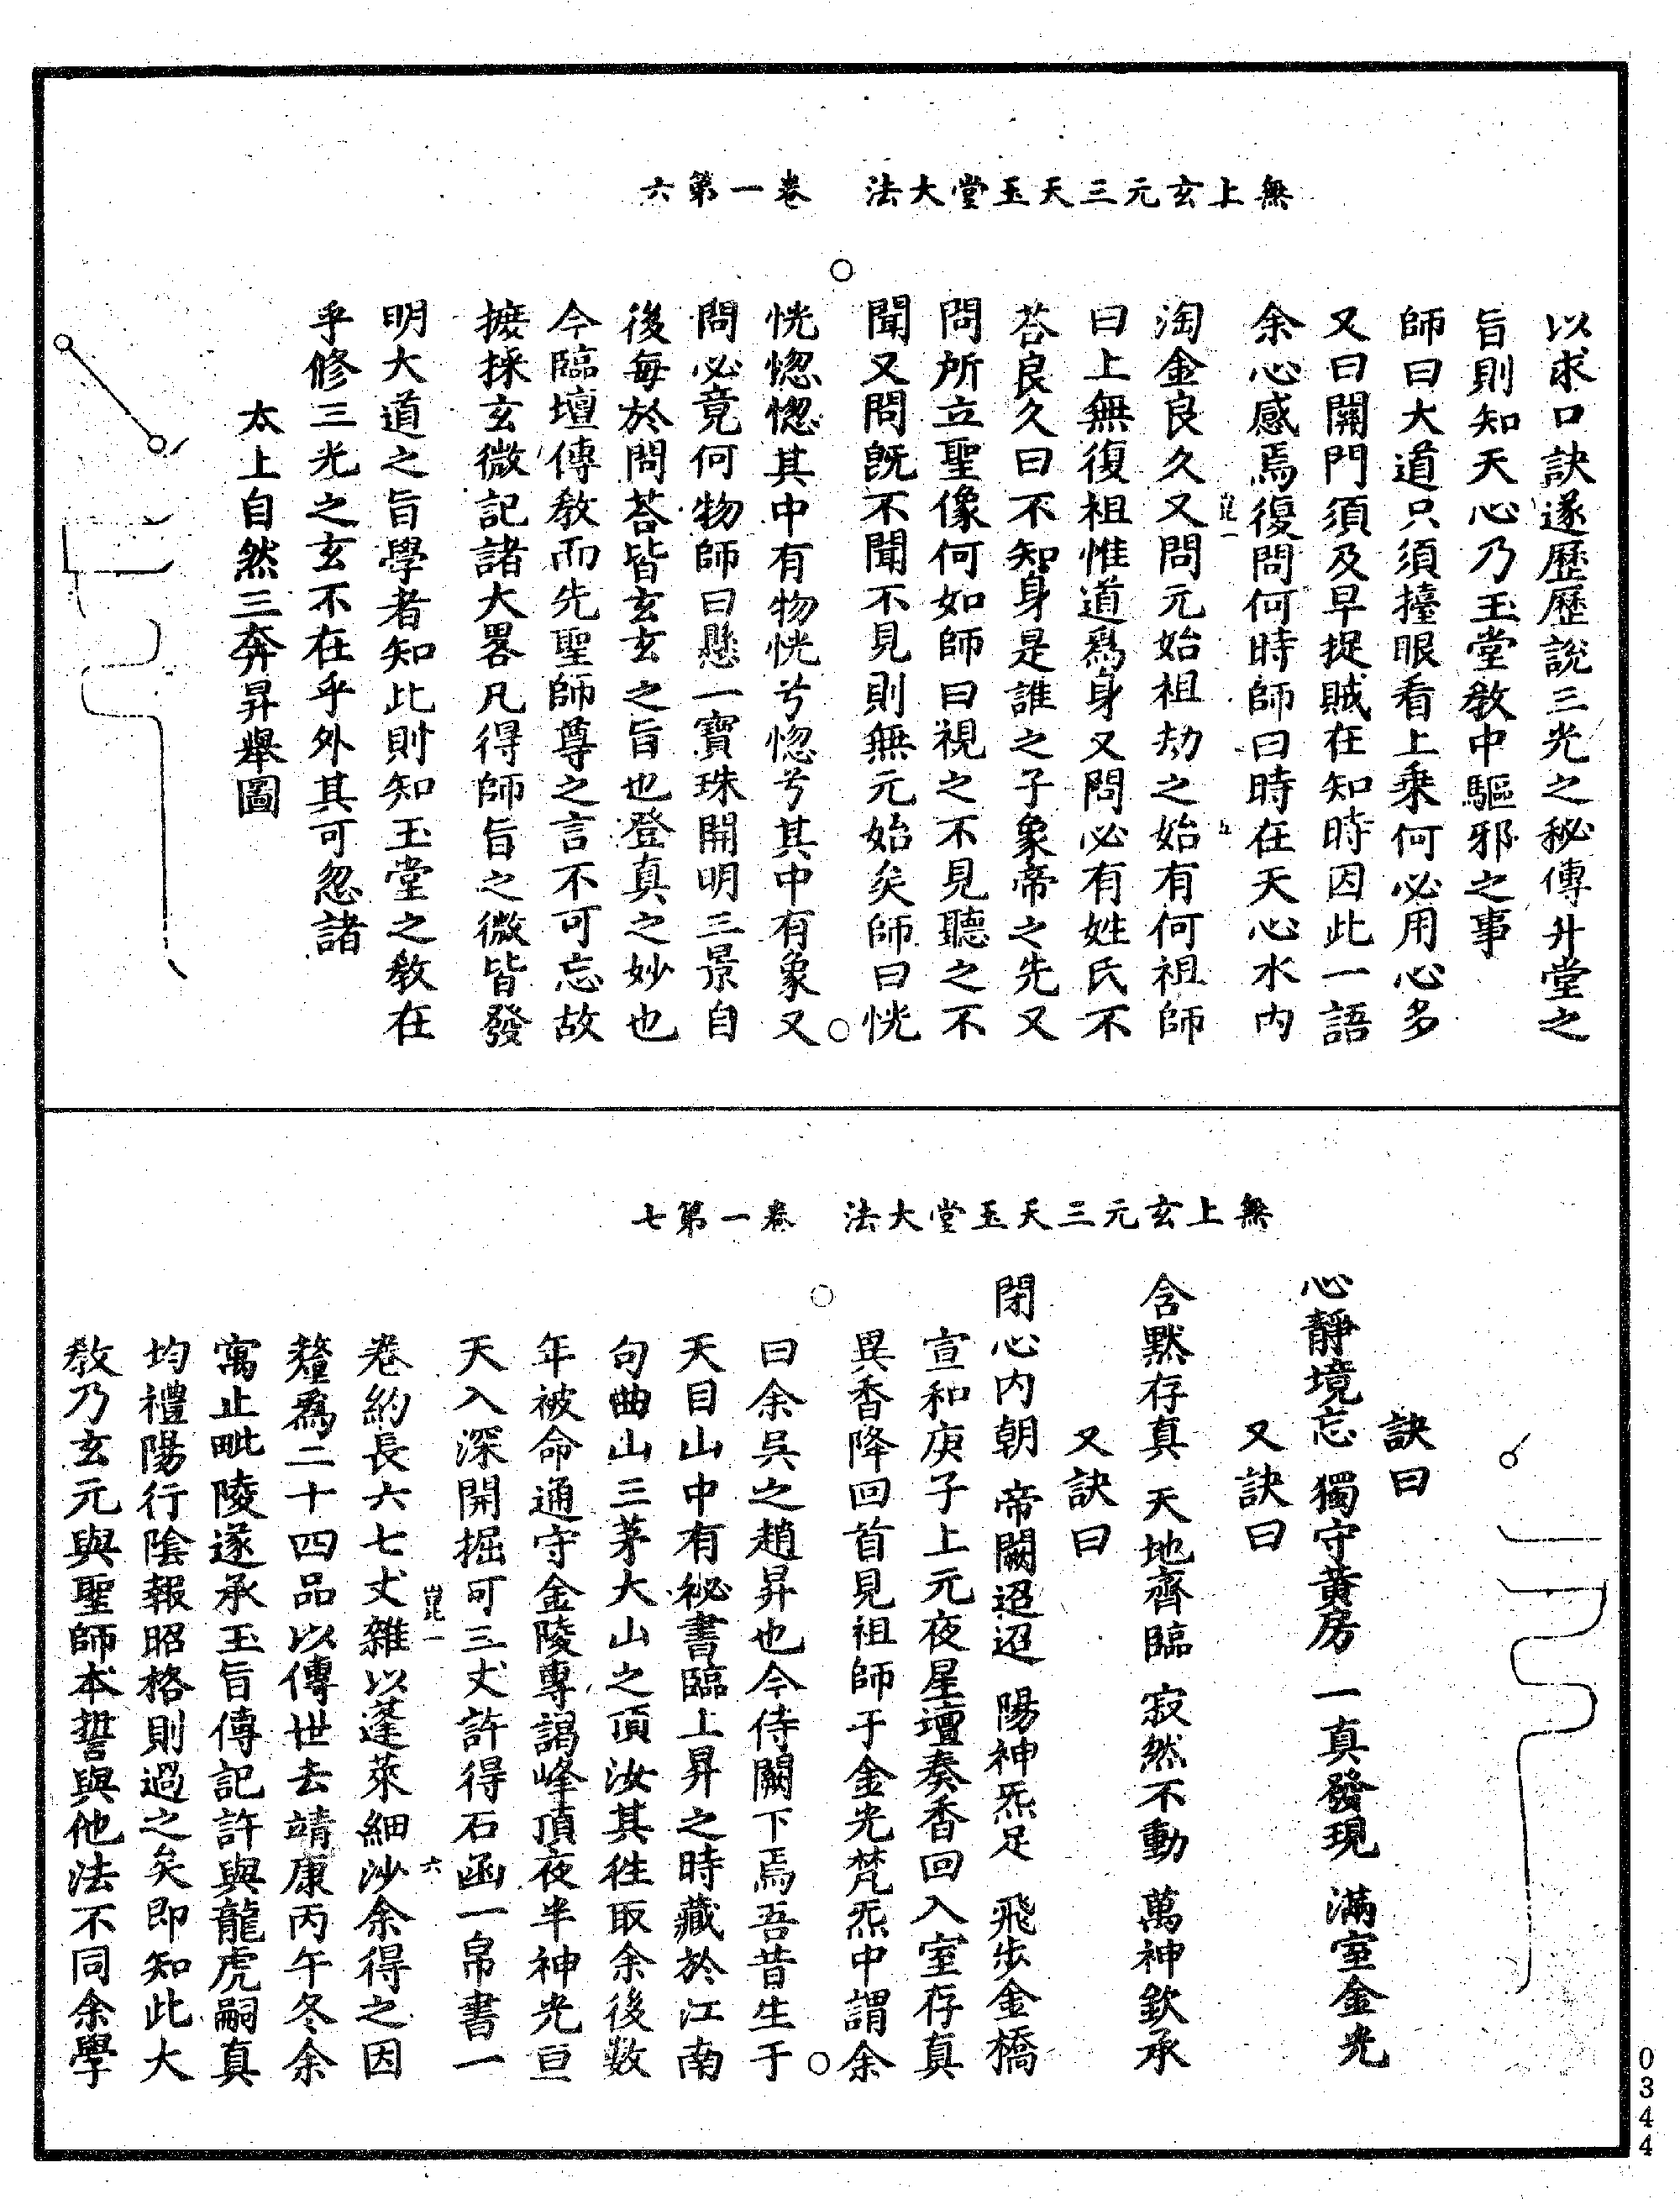 無上玄元三天玉堂大法　卷一第六
以求口訣遂歷歷說三光之秘傳升堂之
旨則知天心乃玉堂教中驅邪之事
師曰大道只須擡眼看上乘何必用心多
又曰開門須及早捉賊在知時因此一語
余心感焉復問何時師曰時在天心水內
崑一　五
淘金良久又問元始祖劫之始有何祖師
曰上無復祖惟道爲身又問必有姓氏不
荅良久曰不知身是誰之子象帝之先又
問所立聖像何如師曰視之不見聽之不
聞又問旣不聞不見則無元始矣師曰恍
恍惚惚其中有物恍兮惚兮其中有象又
問必竟何物師曰懸一寶珠開明三景自
後每於問荅皆玄玄之旨也登真之妙也
今臨壇傳教而先聖師尊之言不可忘故
摭採玄微記諸大畧凡得師旨之微皆發
明大道之旨學者知此則知玉堂之教在
乎修三光之玄不在乎外其可忽諸
太上自然三奔昇舉圖
無上玄元三天玉堂大法　卷一第七
訣曰
心靜境忘　獨守黃房　一真發現　滿室金光
又訣曰
含默存真　天地齊臨　寂然不動　萬神欽承
又訣曰
閉心內朝　帝闕迢迢　陽神炁足　飛步金橋
宣和庚子上元夜星壇奏香回入室存真
異香降回首見祖師于金光梵炁中謂余
曰余吳之趙昇也今侍闕下焉吾昔生于
天目山中有秘書臨上昇之時藏於江南
句曲山三茅大山之頂汝其徃取余後數
年被命通守金陵專謁峰頂夜半神光亘
天入深開掘可三丈許得石函一帛書一
崑一　六
卷約長六七丈雜以蓬萊細沙余得之因
釐爲二十四品以傳世去靖康丙午冬余
寓止毗陵遂承玉旨傳記許與龍虎嗣真
均禮陽行陰報昭格則過之矣即知此大
教乃玄元與聖師本誓與他法不同余學
0344